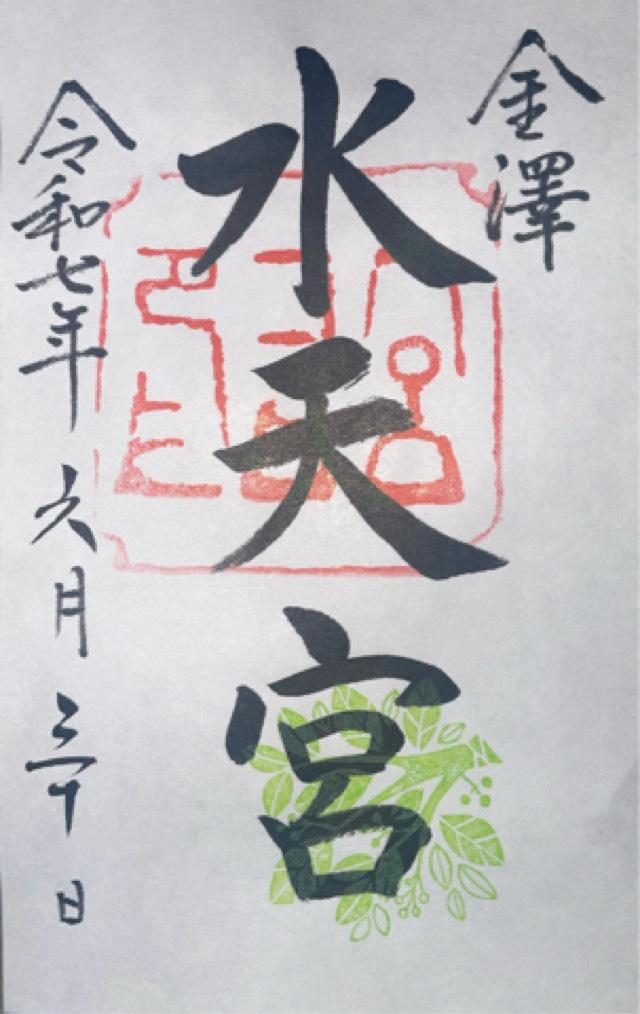 金澤
水天宮
令和七年六月三十日